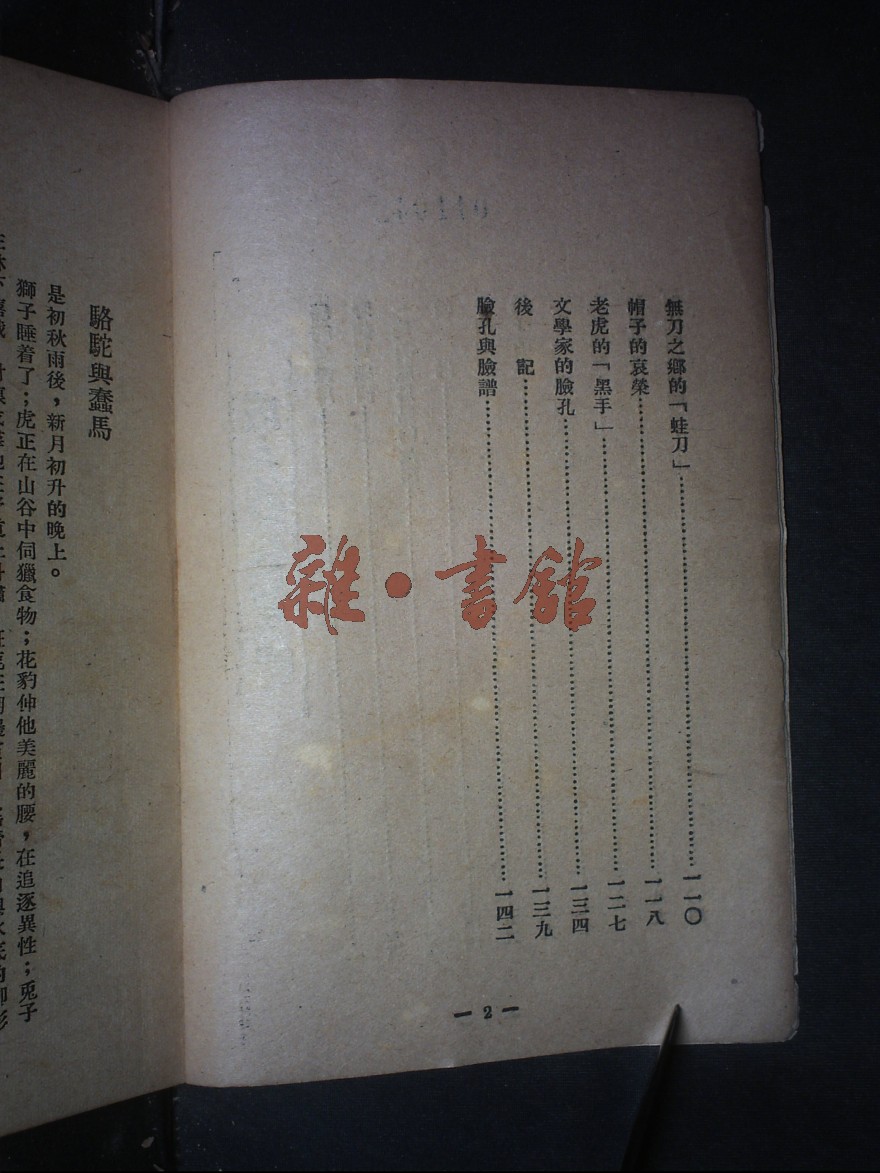 無刀之鄉的「蛙刀」……一一〇
帽子的哀榮……一一八
老虎的「黑手」……一二七
文學家的臉孔……一三四
後　記……一三九
臉孔與臉譜……一四二
— 2 —
雜·書館
駱駝與蠢馬
是初秋雨後，新月初升的晚上。
獅子睡着了；虎正在山谷中伺獵食物；花豹伸他美麗的腰，在追逐異性；兎子